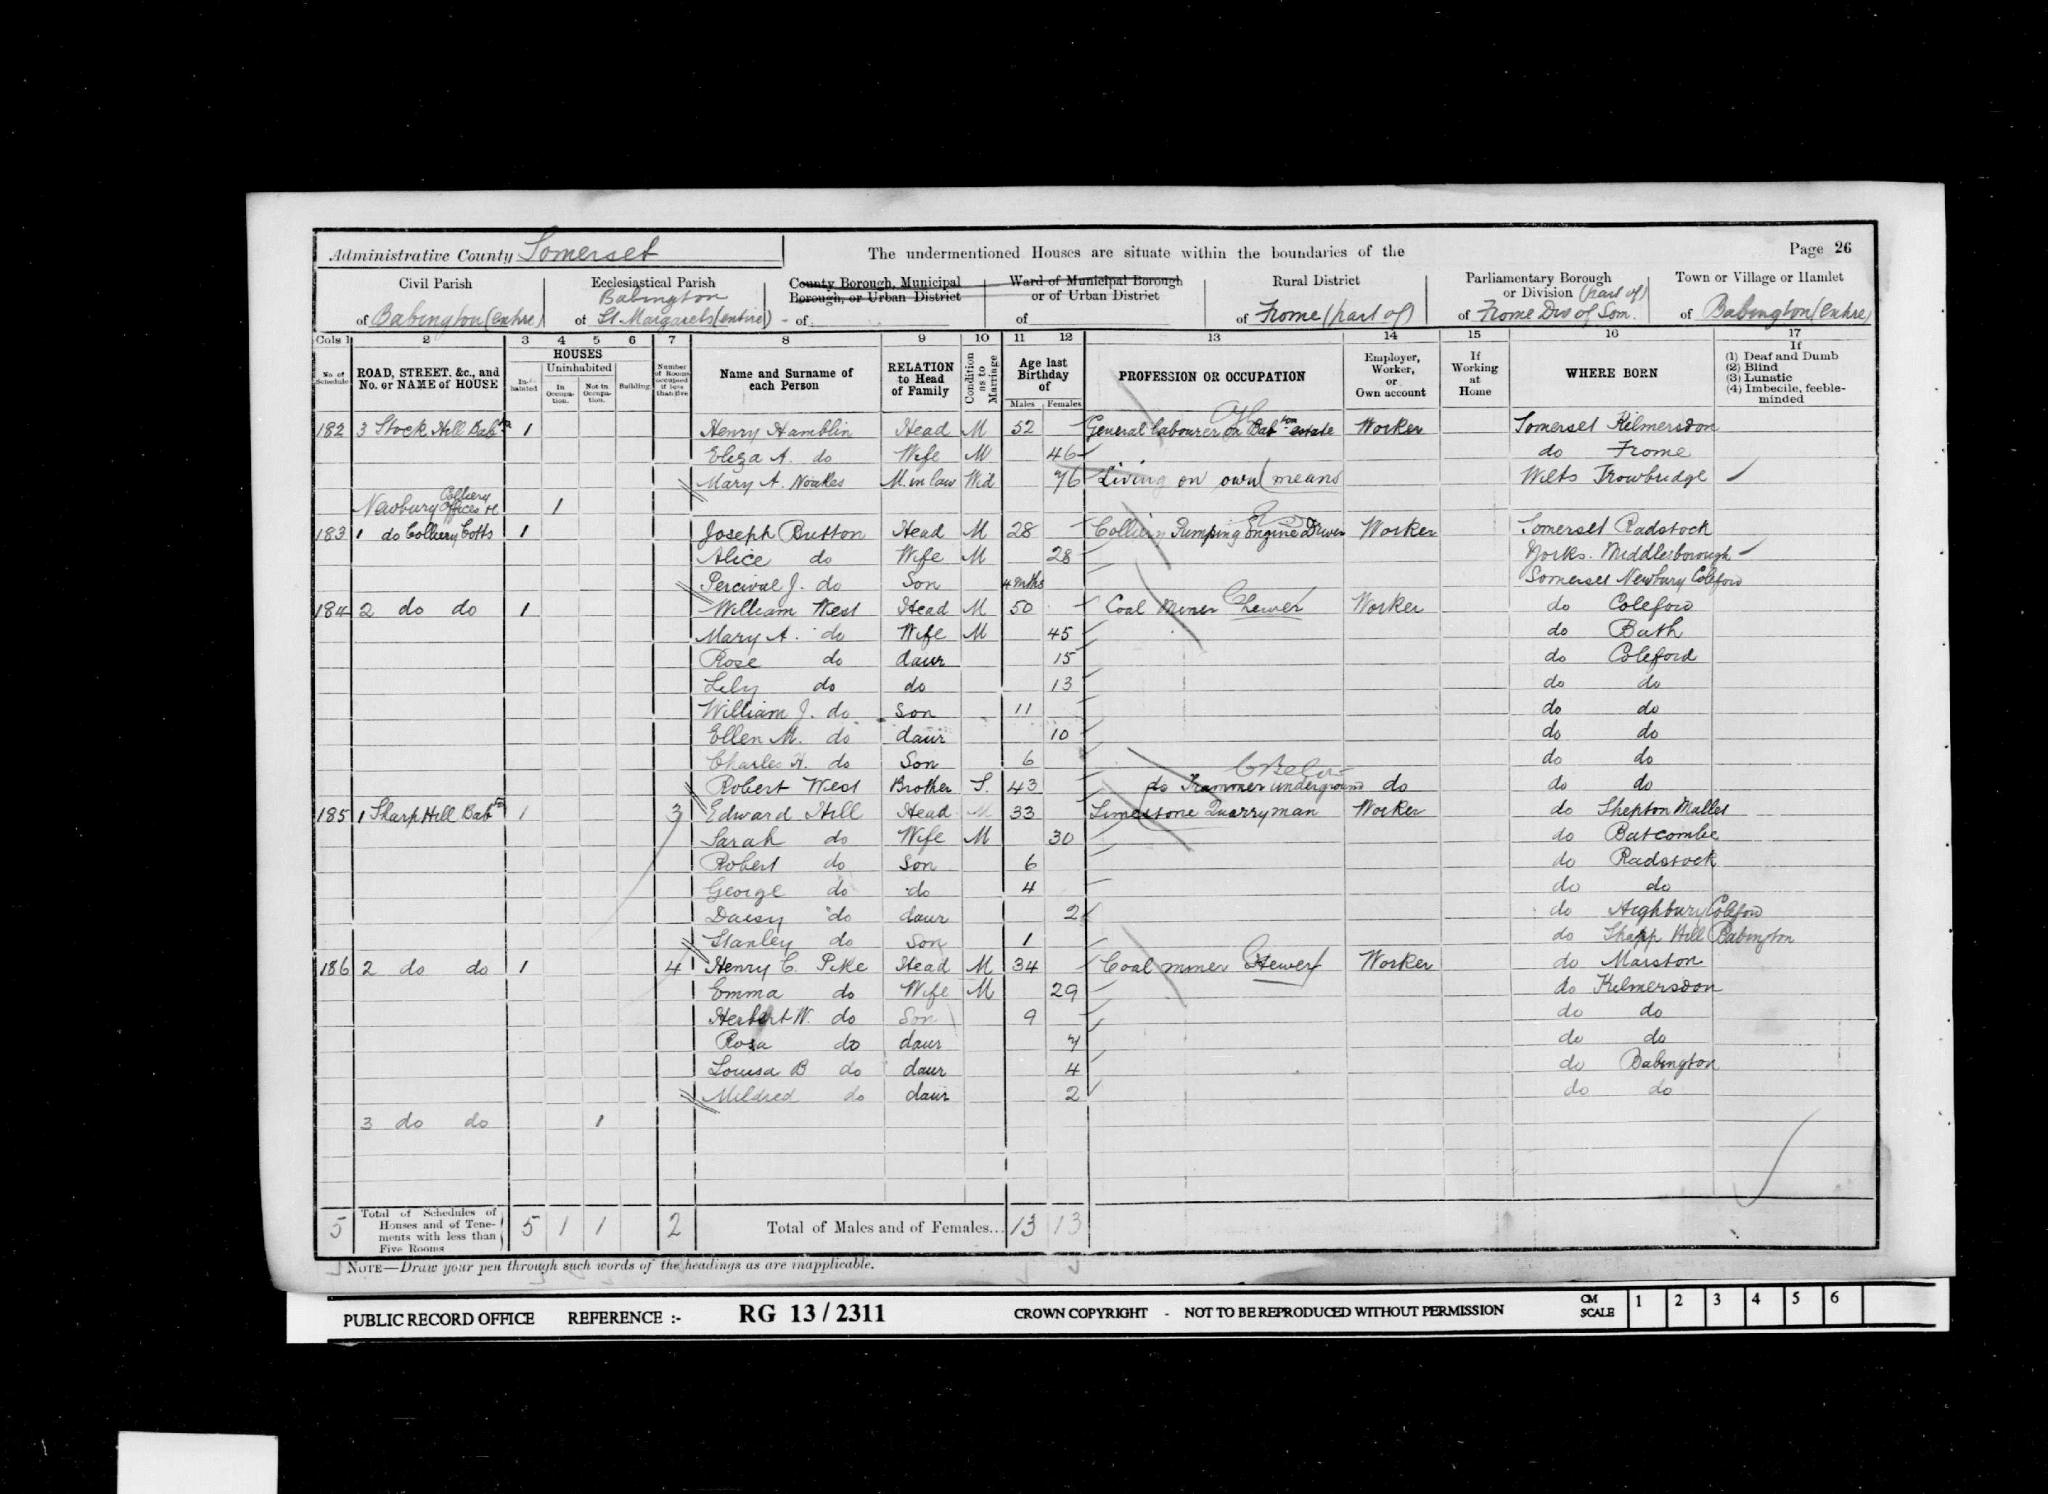 Administrative County Somerset
The undermentioned Houses are situate within the boundaries of the
Page 26
Civil Parish
of Babington (entire)
Ecclesiastical Parish
Babington
of St. Margarets (entire)
County Borough, Municipal
Borough, or Urban District
of
Ward of Municipal Borough
or of Urban District
of
Rural District
of Frome (part of)
Parliamentary Borough
or Division (part of)
of Frome Div of Som.
Town or Village or Hamlet
of Babington (entire)
Cols 1 2 3 4 5 6 7 8 9 10 11 12 13 14 15 16 17
No. of Schedule
ROAD, STREET, &c., and No. or NAME of HOUSE
HOUSES
Inhabited
Uninhabited
In Occupation.
Not in Occupation.
Building
Number of Rooms occupied if less than five
Name and Surname of each Person
RELATION to Head of Family
Condition as to Marriage
Age last Birthday of
Males Females
PROFESSION OR OCCUPATION
Employer, Worker, or Own account
If Working at Home
WHERE BORN
If
(1) Deaf and Dumb
(2) Blind
(3) Lunatic
(4) Imbecile, feeble-minded
182 3 Stock Hill Babtn 1 Henry Hamblin Head M 52 General labourer on Babton estate Worker Somerset Kilmersdon
Eliza A. do Wife M 46 do Frome
Mary A. Noakes M. in law Wid 76 Living on own means Wilts Trowbridge
Newbury Colliery Offices &c 1
183 1 do Colliery Cotts 1 Joseph Button Head M 28 Colliery Pumping Engine Driver Worker Somerset Radstock
Alice do Wife M 28 Yorks. Middlesborough
Percival J. do Son 4 mths Somerset Newbury Coleford
184 2 do do 1 William West Head M 50 Coal Miner Hewer Worker do Coleford
Mary A. do Wife M 45 do Bath
Rose do daur 15 do Coleford
Lily do do 13 do do
William J. do Son 11 do do
Ellen M. do daur 10 do do
Charles H. do Son 6 do do
Robert West Brother S. 43 do Trammer underground do do do
185 1 Sharp Hill Babtn 1 3 Edward Hill Head M 33 Limestone Quarryman Worker do Shepton Mallet
Sarah do Wife M 30 do Batcombe
Robert do Son 6 do Radstock
George do do 4 do do
Daisy do daur 2 do Highbury Coleford
Stanley do Son 1 do Sharp Hill Babington
186 2 do do 1 4 Henry C. Pike Head M 34 Coal miner Hewer Worker do Marston
Emma do Wife M 29 do Kilmersdon
Herbert W. do Son 9 do do
Rosa do daur 7 do do
Louisa B do daur 4 do Babington
Mildred do daur 2 do do
3 do do 1
5 Total of Schedules of Houses and of Tenements with less than Five Rooms 5 1 1 2 Total of Males and of Females... 13 13
NOTE—Draw your pen through such words of the headings as are inapplicable.
PUBLIC RECORD OFFICE REFERENCE :- RG 13/2311 CROWN COPYRIGHT - NOT TO BE REPRODUCED WITHOUT PERMISSION CM SCALE 1 2 3 4 5 6